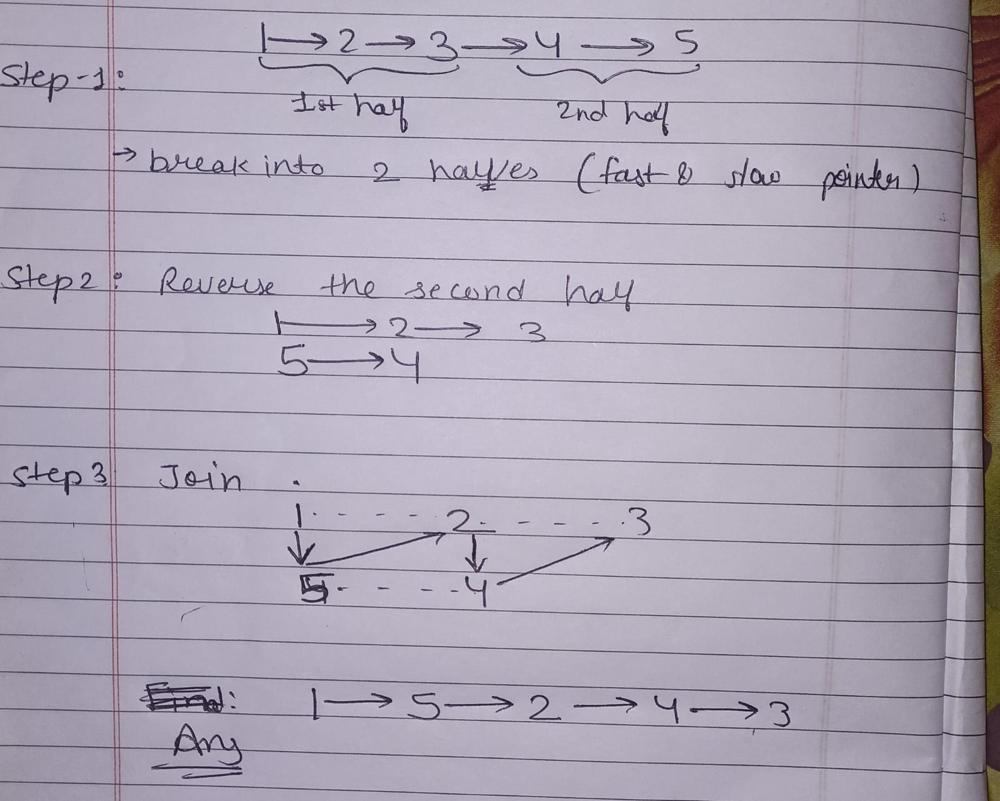 1 → 2 → 3 → 4 → 5
Step-1:
1st half 2nd half
→ break into 2 halves (fast & slow pointer)
Step2: Reverse the second half
1 → 2 → 3
5 → 4
Step3 Join
1 - - - - 2 - - - - 3
5 - - - - 4
1 → 5 → 2 → 4 → 3
Ans